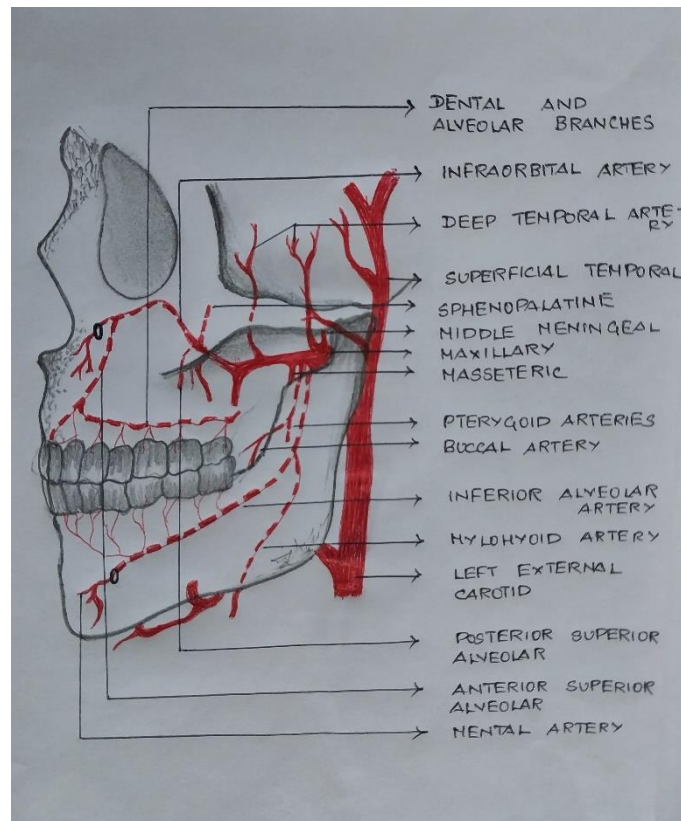 DENTAL AND
ALVEOLAR BRANCHES
INFRAORBITAL ARTERY
DEEP TEMPORAL ARTE-
RY
SUPERFICIAL TEMPORAL
SPHENOPALATINE
MIDDLE MENINGEAL
MAXILLARY
MASSETERIC
PTERYGOID ARTERIES
BUCCAL ARTERY
INFERIOR ALVEOLAR
ARTERY
MYLOHYOID ARTERY
LEFT EXTERNAL
CAROTID
POSTERIOR SUPERIOR
ALVEOLAR
ANTERIOR SUPERIOR
ALVEOLAR
MENTAL ARTERY